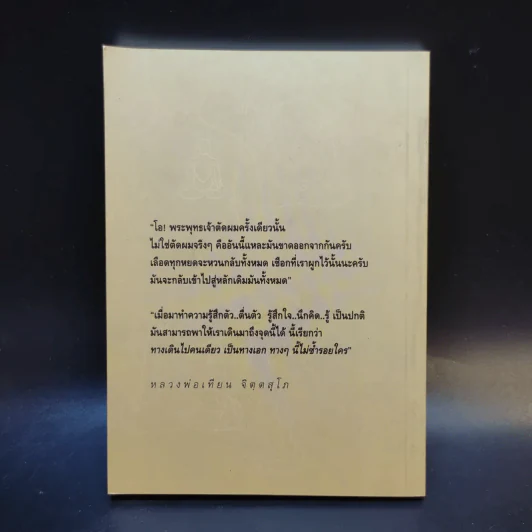 "โอ! พระพุทธเจ้าตัดผมครั้งเดียวนั้น
ไม่ใช่ตัดผมจริงๆ คืออันนี้แหละมันขาดออกจากกันครับ
เลือดทุกหยดจะหวนกลับทั้งหมด เชือกที่เราผูกไว้นั้นนะครับ
มันจะกลับเข้าไปสู่หลักเดิมมันทั้งหมด"
"เมื่อมาทำความรู้สึกตัว..ตื่นตัว รู้สึกใจ..นึกคิด..รู้ เป็นปกติ
มันสามารถพาให้เราเดินมาถึงจุดนี้ได้ นี้เรียกว่า
ทางเดินไปคนเดียว เป็นทางเอก ทางๆ นี้ไม่ซ้ำรอยใคร"
หลวงพ่อเทียน จิตฺตสุโภ